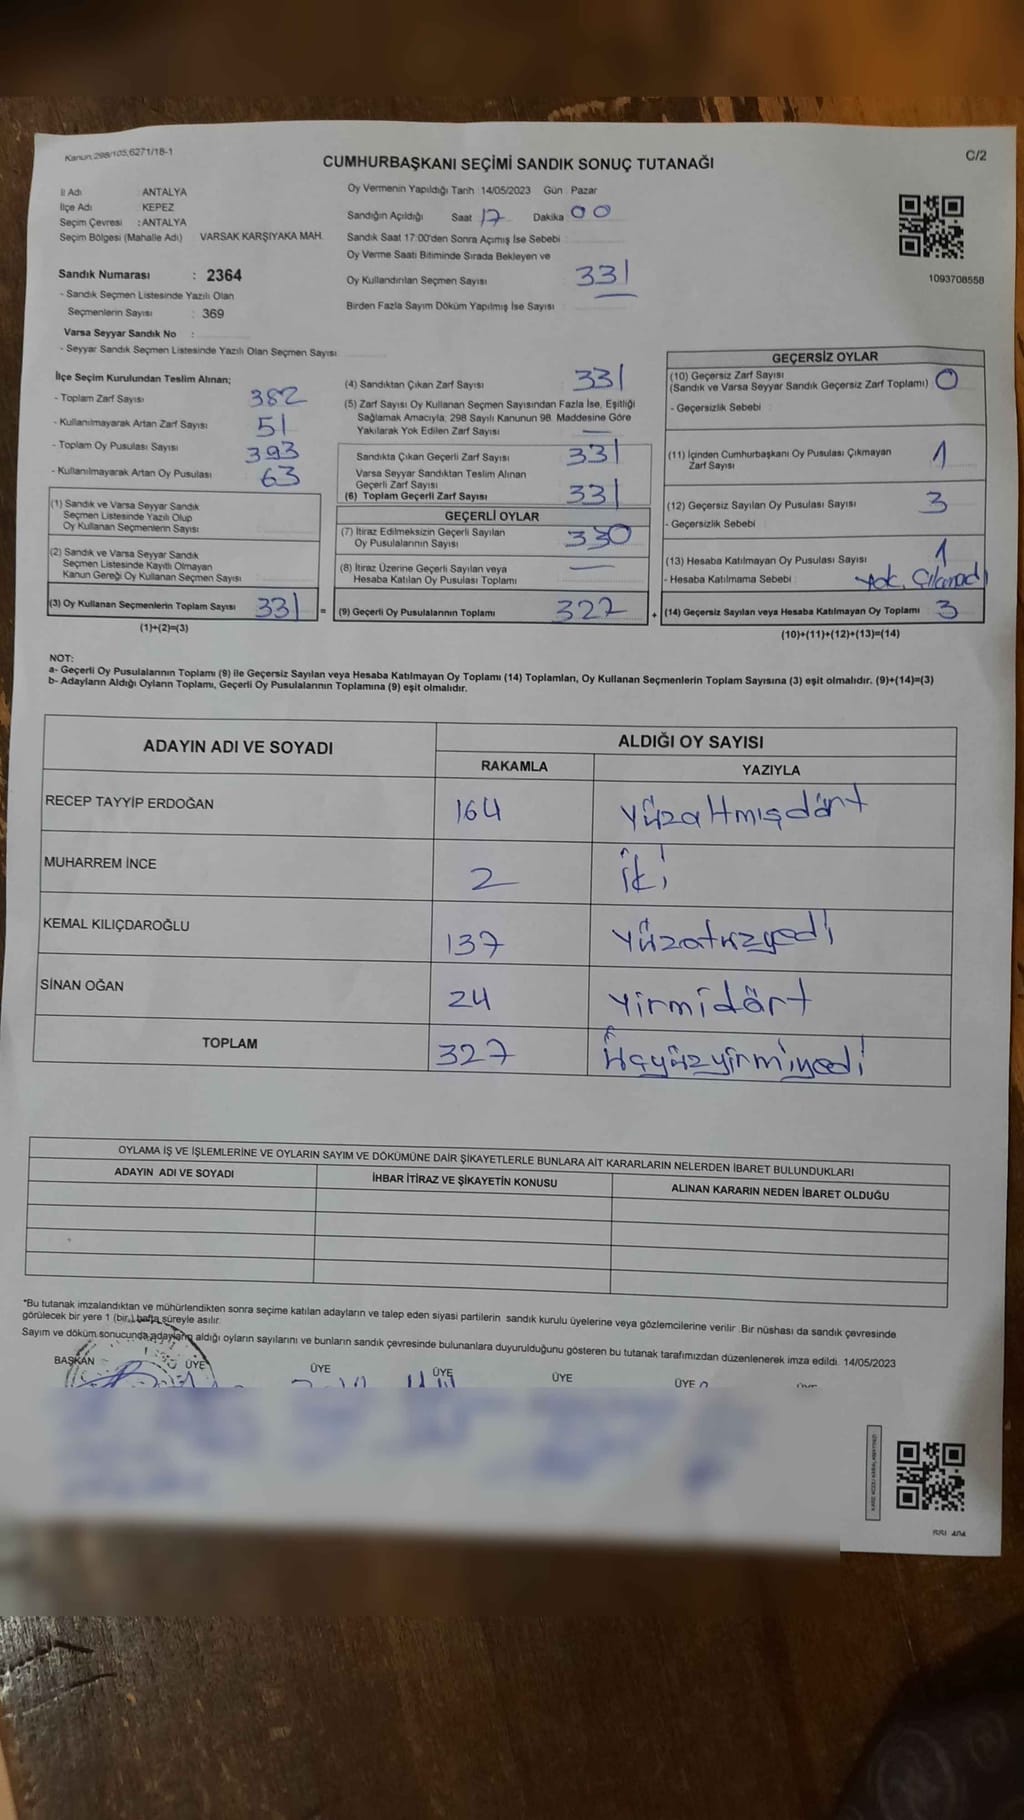 Kanun:298/105,6271/18-1
C/2
CUMHURBAŞKANI SEÇİMİ SANDIK SONUÇ TUTANAĞI
İl Adı : ANTALYA
İlçe Adı : KEPEZ
Seçim Çevresi : ANTALYA
Seçim Bölgesi (Mahalle Adı) VARSAK KARŞIYAKA MAH.
Sandık Numarası : 2364
- Sandık Seçmen Listesinde Yazılı Olan
Seçmenlerin Sayısı : 369
Varsa Seyyar Sandık No :
- Seyyar Sandık Seçmen Listesinde Yazılı Olan Seçmen Sayısı
Oy Vermenin Yapıldığı Tarih 14/05/2023 Gün Pazar
Sandığın Açıldığı Saat 17 Dakika 00
Sandık Saat 17:00'den Sonra Açımış İse Sebebi
Oy Verme Saati Bitiminde Sırada Bekleyen ve
Oy Kullandırılan Seçmen Sayısı 331
Birden Fazla Sayım Döküm Yapılmış İse Sayısı
1093708558
İlçe Seçim Kurulundan Teslim Alınan;
- Toplam Zarf Sayısı 382
- Kullanılmayarak Artan Zarf Sayısı 51
- Toplam Oy Pusulası Sayısı 393
- Kullanılmayarak Artan Oy Pusulası 63
(1) Sandık ve Varsa Seyyar Sandık
Seçmen Listesinde Yazılı Olup
Oy Kullanan Seçmenlerin Sayısı
(2) Sandık ve Varsa Seyyar Sandık
Seçmen Listesinde Kayıtlı Olmayan
Kanun Gereği Oy Kullanan Seçmen Sayısı
(3) Oy Kullanan Seçmenlerin Toplam Sayısı 331 =
(1)+(2)=(3)
(4) Sandıktan Çıkan Zarf Sayısı 331
(5) Zarf Sayısı Oy Kullanan Seçmen Sayısından Fazla İse, Eşitliği
Sağlamak Amacıyla, 298 Sayılı Kanunun 98. Maddesine Göre
Yakılarak Yok Edilen Zarf Sayısı —
Sandıkta Çıkan Geçerli Zarf Sayısı 331
Varsa Seyyar Sandıktan Teslim Alınan
Geçerli Zarf Sayısı
(6) Toplam Geçerli Zarf Sayısı 331
GEÇERLİ OYLAR
(7) İtiraz Edilmeksizin Geçerli Sayılan
Oy Pusulalarının Sayısı 330
(8) İtiraz Üzerine Geçerli Sayılan veya
Hesaba Katılan Oy Pusulası Toplamı —
(9) Geçerli Oy Pusulalarının Toplamı 327 +
GEÇERSİZ OYLAR
(10) Geçersiz Zarf Sayısı
(Sandık ve Varsa Seyyar Sandık Geçersiz Zarf Toplamı) 0
- Geçersizlik Sebebi
(11) İçinden Cumhurbaşkanı Oy Pusulası Çıkmayan
Zarf Sayısı 1
(12) Geçersiz Sayılan Oy Pusulası Sayısı 3
- Geçersizlik Sebebi
(13) Hesaba Katılmayan Oy Pusulası Sayısı 1
- Hesaba Katılmama Sebebi
(14) Geçersiz Sayılan veya Hesaba Katılmayan Oy Toplamı 3
(10)+(11)+(12)+(13)=(14)
NOT:
a- Geçerli Oy Pusulalarının Toplamı (9) ile Geçersiz Sayılan veya Hesaba Katılmayan Oy Toplamı (14) Toplamları, Oy Kullanan Seçmenlerin Toplam Sayısına (3) eşit olmalıdır. (9)+(14)=(3)
b- Adayların Aldığı Oyların Toplamı, Geçerli Oy Pusulalarının Toplamına (9) eşit olmalıdır.
ADAYIN ADI VE SOYADI ALDIĞI OY SAYISI
RAKAMLA YAZIYLA
RECEP TAYYİP ERDOĞAN 164 Yüzaltmışdört
MUHARREM İNCE 2 İki
KEMAL KILIÇDAROĞLU 137 Yüzotuzyedi
SİNAN OĞAN 24 Yirmidört
TOPLAM 327 Üçyüzyirmiyedi
OYLAMA İŞ VE İŞLEMLERİNE VE OYLARIN SAYIM VE DÖKÜMÜNE DAİR ŞİKAYETLERLE BUNLARA AİT KARARLARIN NELERDEN İBARET BULUNDUKLARI
ADAYIN ADI VE SOYADI İHBAR İTİRAZ VE ŞİKAYETİN KONUSU ALINAN KARARIN NEDEN İBARET OLDUĞU
*Bu tutanak imzalandıktan ve mühürlendikten sonra seçime katılan adayların ve talep eden siyasi partilerin sandık kurulu üyelerine veya gözlemcilerine verilir .Bir nüshası da sandık çevresinde
görülecek bir yere 1 (bir,) hafta süreyle asılır.
Sayım ve döküm sonucunda adayların aldığı oyların sayılarını ve bunların sandık çevresinde bulunanlara duyurulduğunu gösteren bu tutanak tarafımızdan düzenlenerek imza edildi. 14/05/2023
BAŞKAN ÜYE ÜYE ÜYE ÜYE ÜYE